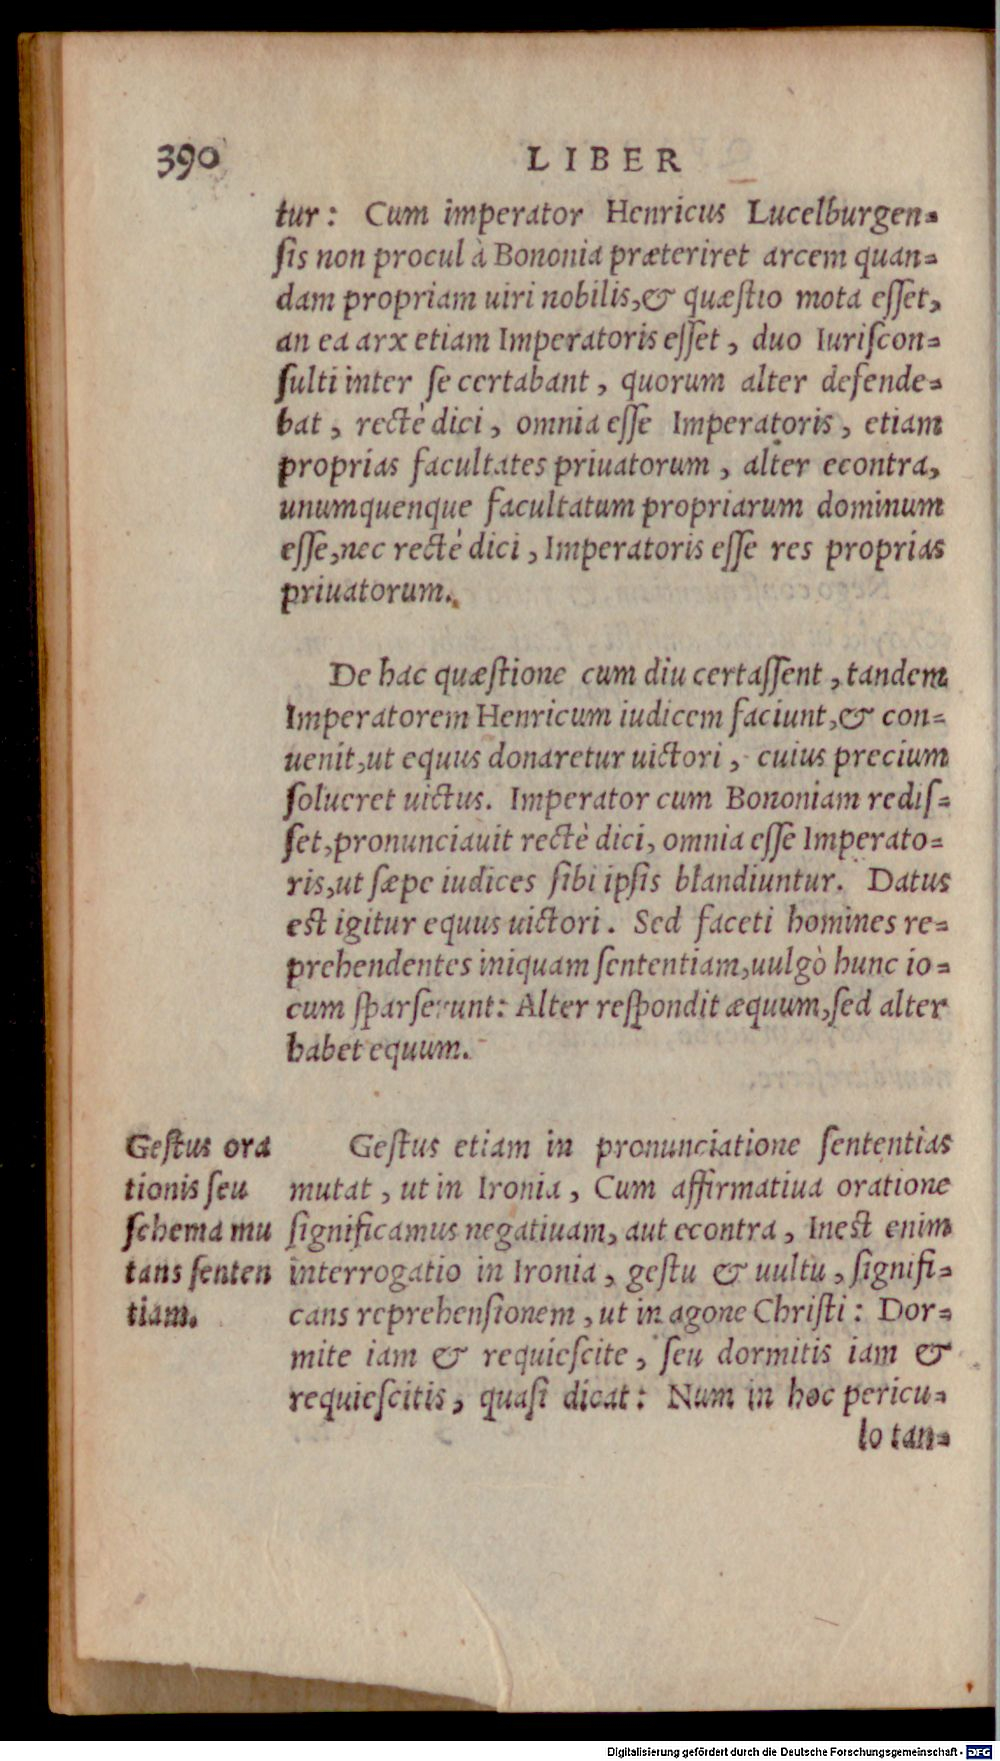 390 LIBER
tur: Cum imperator Henricus Lucelburgen-
ſis non procul à Bononia præteriret arcem quan-
dam propriam uiri nobilis, & quæſtio mota eſſet,
an ea arx etiam Imperatoris eſſet, duo Iuriſcon-
ſulti inter ſe certabant, quorum alter defende-
bat, rectè dici, omnia eſſe Imperatoris, etiam
proprias facultates priuatorum, alter econtra,
unumquenque facultatum propriarum dominum
eſſe, nec rectè dici, Imperatoris eſſe res proprias
priuatorum.
De hac quæſtione cum diu certaſſent, tandem
Imperatorem Henricum iudicem faciunt, & con-
uenit, ut equus donaretur uictori, cuius precium
ſolueret uictus. Imperator cum Bononiam rediſ-
ſet, pronunciauit rectè dici, omnia eſſe Imperato-
ris, ut ſæpe iudices ſibi ipſis blandiuntur. Datus
est igitur equus uictori. Sed faceti homines re-
prehendentes iniquam ſententiam, uulgò hunc io-
cum ſparſerunt: Alter reſpondit æquum, ſed alter
habet equum.
Geſtus ora
tionis ſeu
ſchema mu
tans ſenten
tiam.
Geſtus etiam in pronunciatione ſententias
mutat, ut in Ironia, Cum affirmatiua oratione
ſignificamus negatiuam, aut econtra, Inest enim
interrogatio in Ironia, geſtu & uultu, ſignifi-
cans reprehenſionem, ut in agone Chriſti: Dor-
mite iam & requieſcite, ſeu dormitis iam &
requieſcitis, quaſi dicat: Num in hoc pericu-
lo tan-
Digitalisierung gefördert durch die Deutsche Forschungsgemeinschaft - DFG